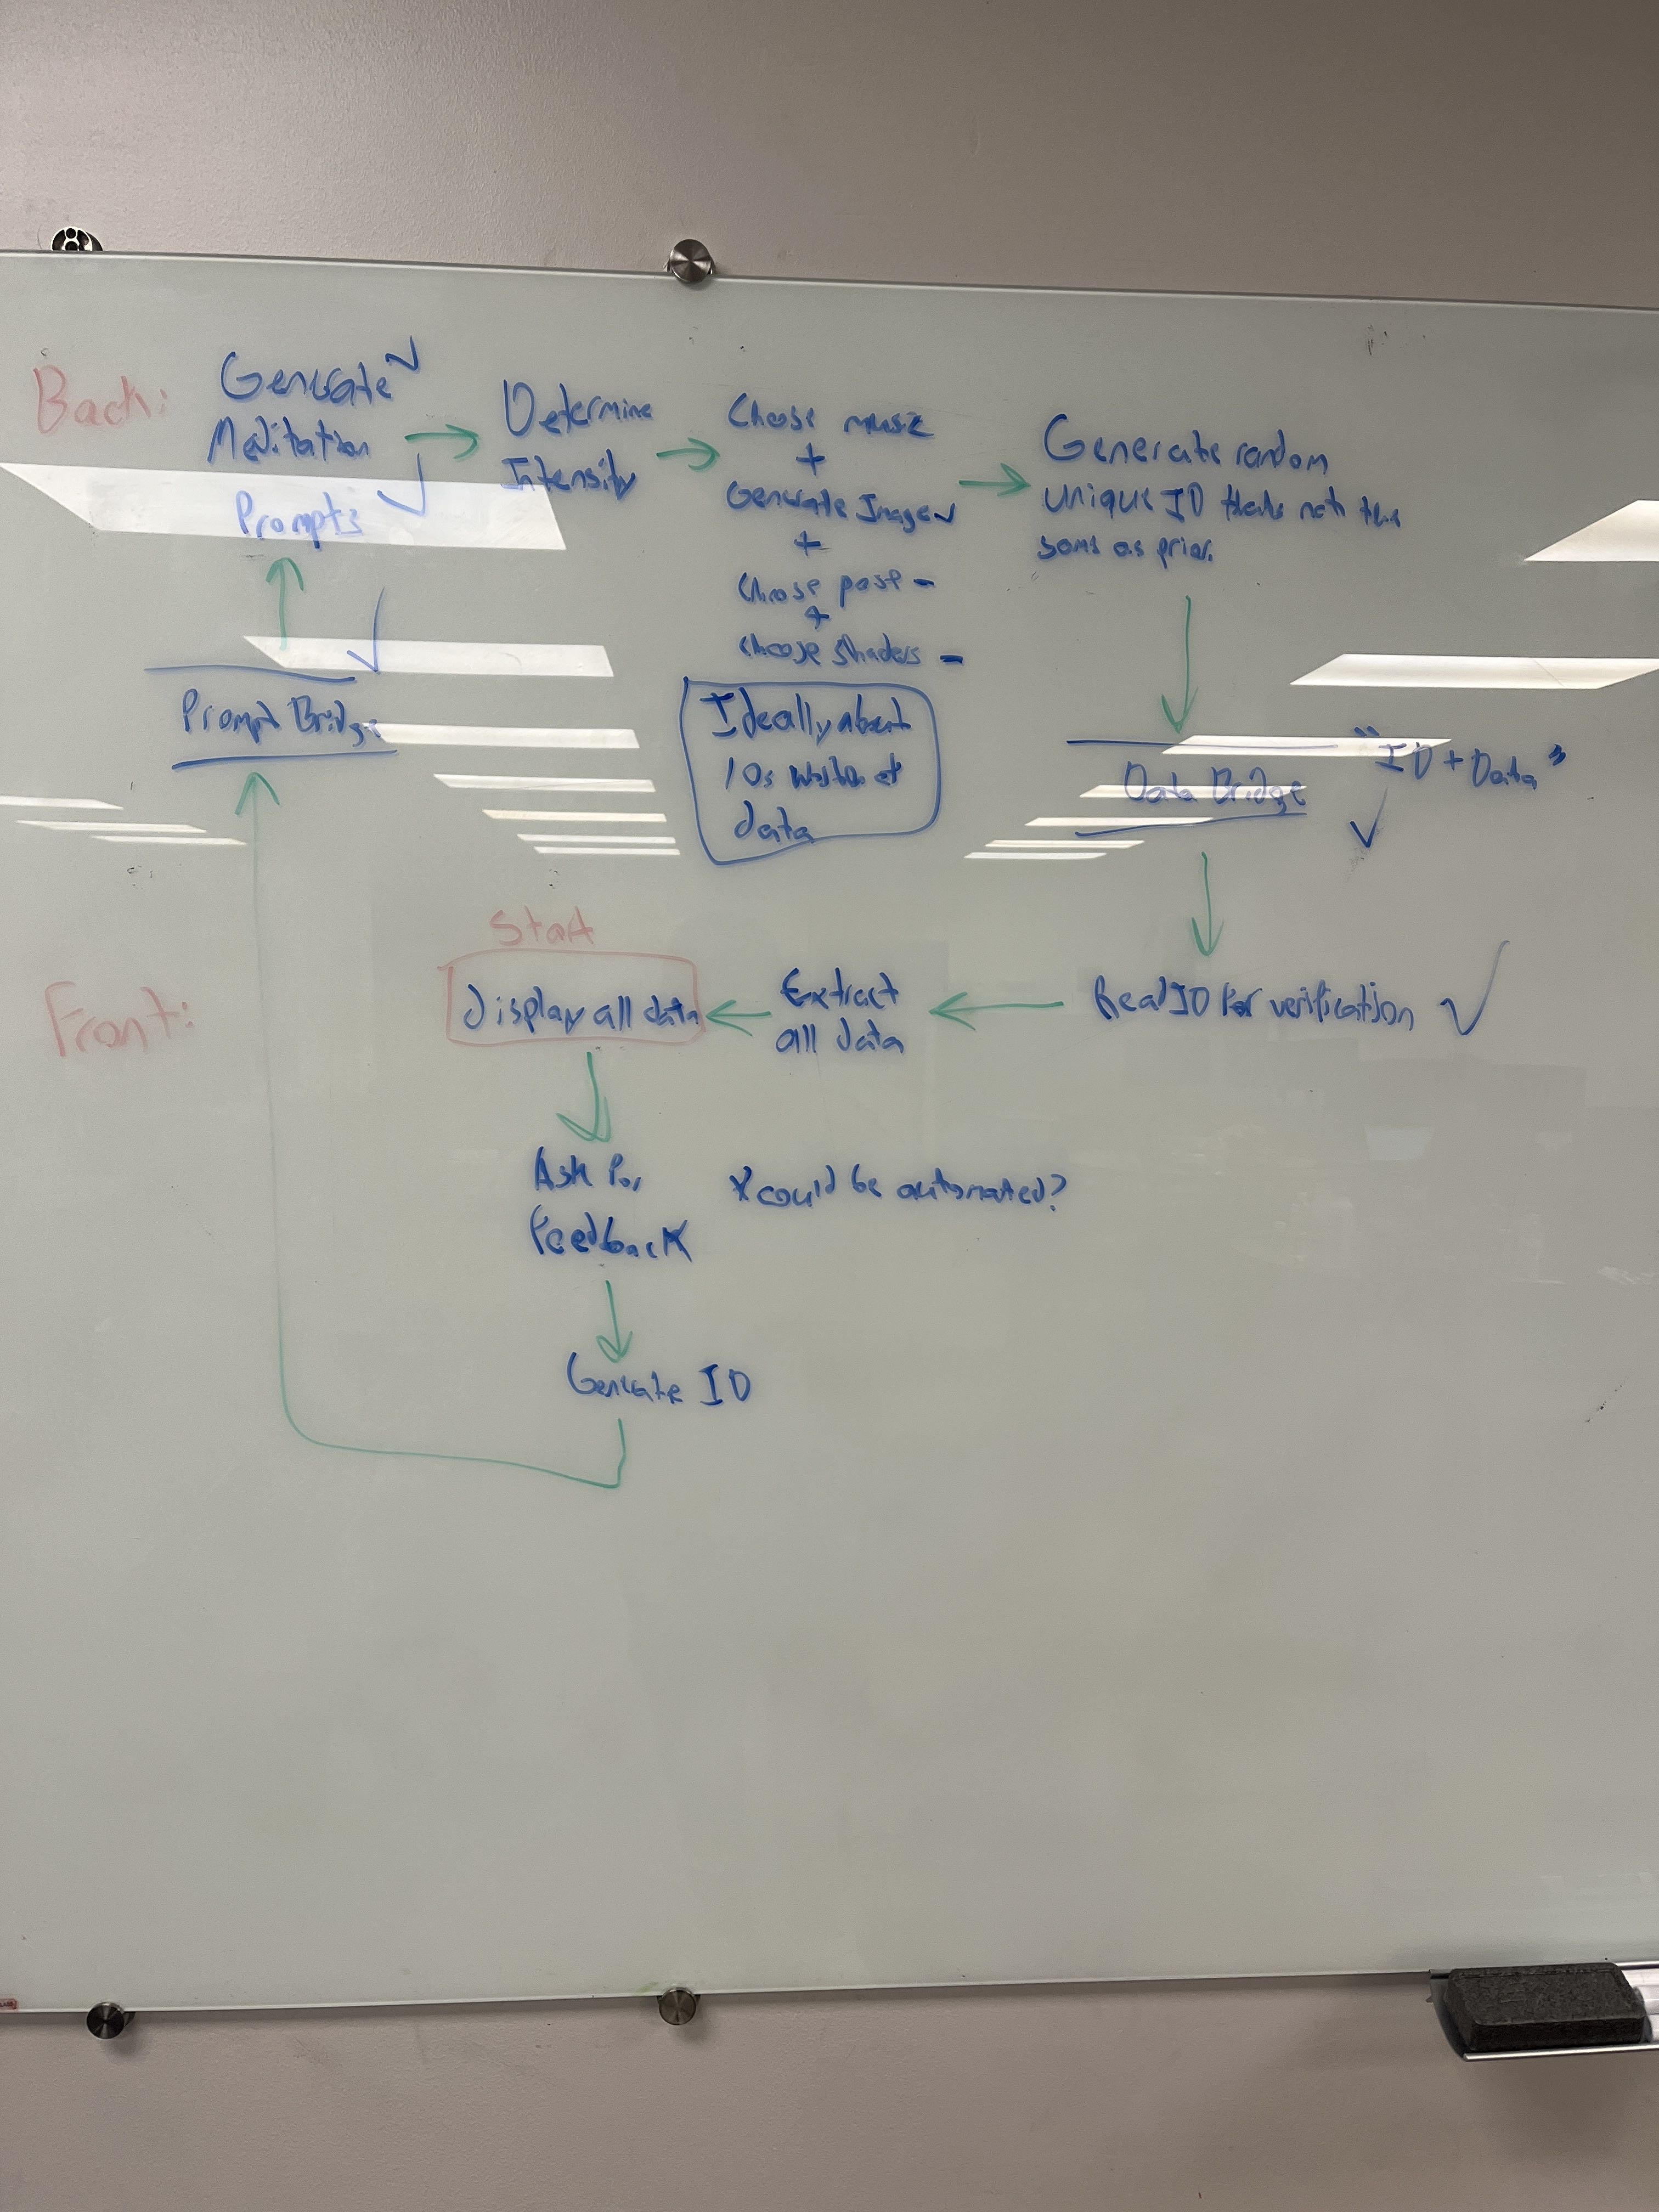 Back:
Generate
Meditation
Prompts
Determine
Intensity
Choose music
+
Generate Image
+
Choose post -
+
choose shaders -
Generate random
unique ID thats not the
same as prior.
Prompt Bridge
Ideally about
10s worth of
data
Data Bridge
"ID + Data"
Front:
Start
Display all data
Extract
all data
Read ID for verification
Ask for
Feedback
* could be automated?
Generate ID